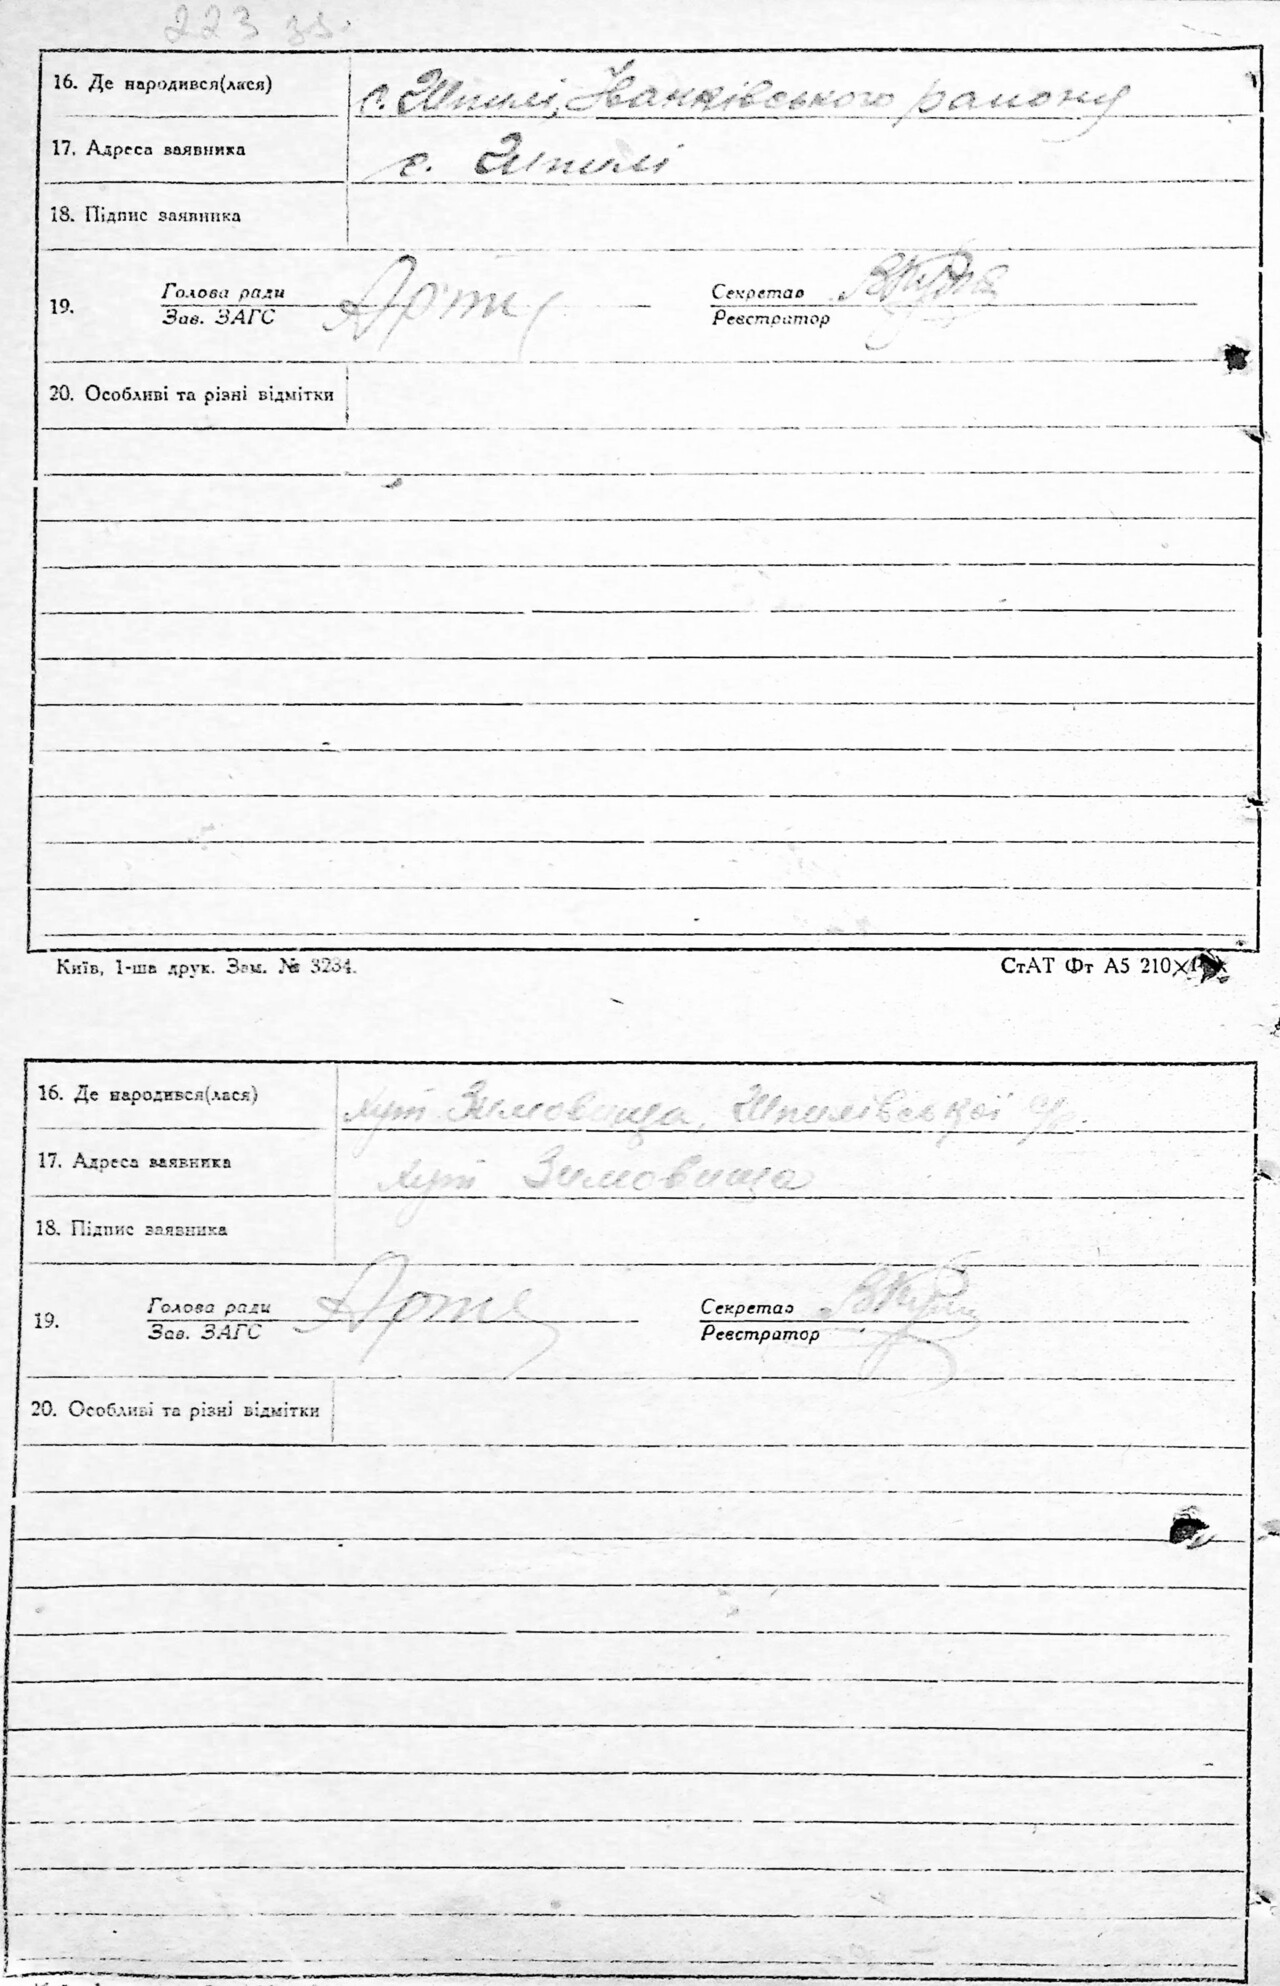 223 зв.
16. Де народився(лася) с. Шпилі, Іванківського району
17. Адреса заявника с. Шпилі
18. Підпис заявника
Голова ради Секретар
19.
Зав. ЗАГС Реєстратор
20. Особливі та різні відмітки
Київ, 1-ша друк. Зам. № 3234. СтАТ Фт А5 210×
16. Де народився(лася) хут Зимовища, Шпилівської с/р.
17. Адреса заявника хут Зимовища
18. Підпис заявника
Голова ради Секретар
19.
Зав. ЗАГС Реєстратор
20. Особливі та різні відмітки